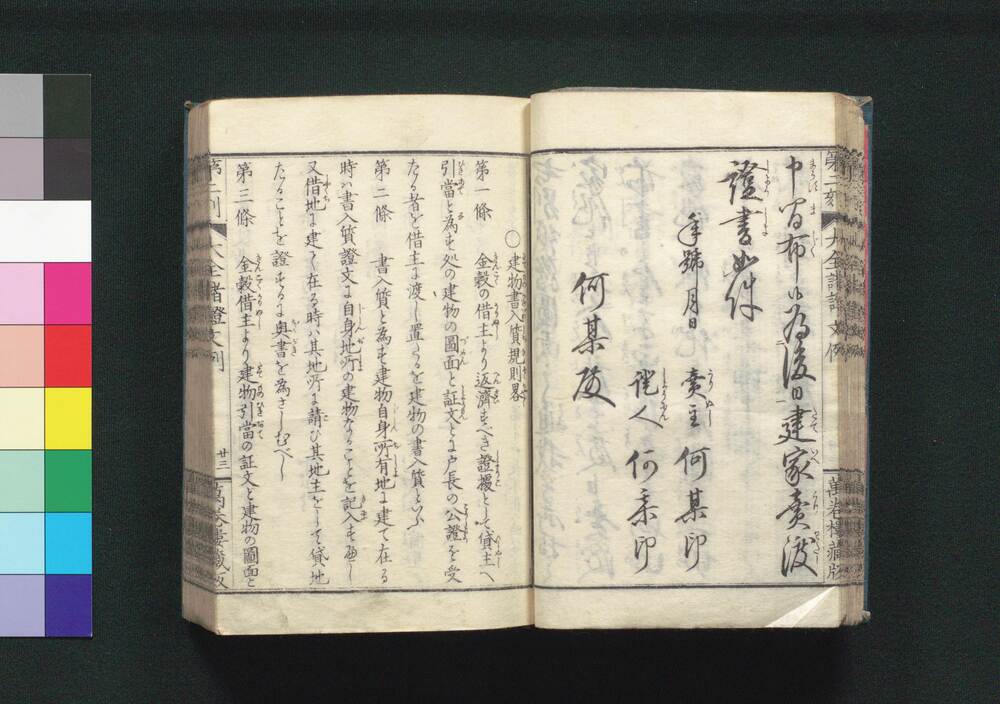 申間布候為後日建家賣渡
證書如件
年號月日 賣主 何某印
證人 何某印
何某殿
○建物書入質規則畧
第一條 金穀の借主より返濟すべき證據として貸主へ
引當と為す処の建物の圖面と証文とに戸長の公證を受
たる者を借主に渡し置くを建物の書入質といふ
第二條 書入質と為す建物自身所有地に建て在る
時ハ書入質證文に自身地所の建物なることを記入す每し
又借地に建て在る時ハ其地所に請ひ其地主をして貸地
たることを證するに奥書を為さしむべし
第三條 金穀借主より建物引當の証文と建物の圖面と
廿三
萬卷樓藏版